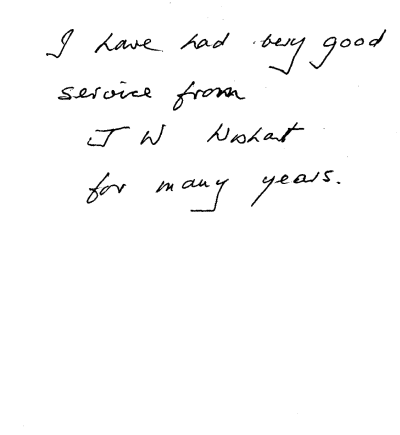 I have had very good
service from
J W Wishart
for many years.